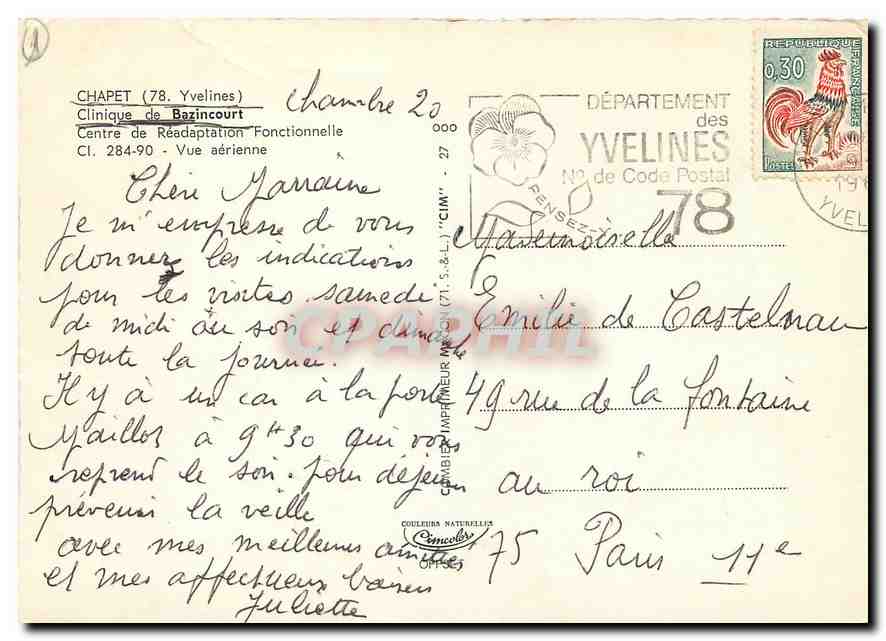 1
CHAPET (78. Yvelines)
Clinique de Bazincourt
Centre de Réadaptation Fonctionnelle
CI. 284-90 - Vue aérienne
Chambre 20
Chère Marraine
Je m'empresse de vous
donner les indications
pour les visites samedi
de midi au soir et dimanche
toute la journée.
Il y à un car à la porte
Maillot à 9H30 qui vous
reprend le soir. pour déjeuner
prévenir la veille
avec mes meilleures amitiés
et mes affectueux baisers
Juliette
COMBIER IMPRIMEUR MACON (71. S.-&-L.) "CIM" - 27 000
COULEURS NATURELLES
Cimcolor
OFFSET
DÉPARTEMENT
des
YVELINES
No de Code Postal
78
PENSEZ-Y
REPUBLIQUE FRANÇAISE
0,30
POSTES
YVEL
Mademoiselle
Emilie de Castelnau
49 rue de la fontaine
au roi
75 Paris 11e
CPAPHIL